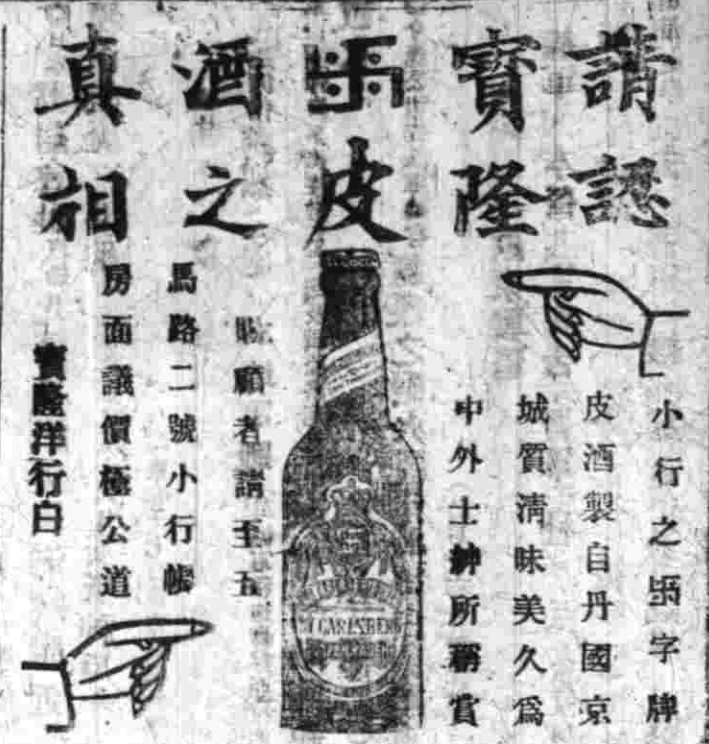 請認
寶隆
卐皮
酒之
真相
小行之卐字牌
皮酒製自丹國京
城質清味美久爲
中外士紳所稱賞
賜顧者請至五
馬路二號小行帳
房面議價極公道
寶隆洋行白
CARLSBERG